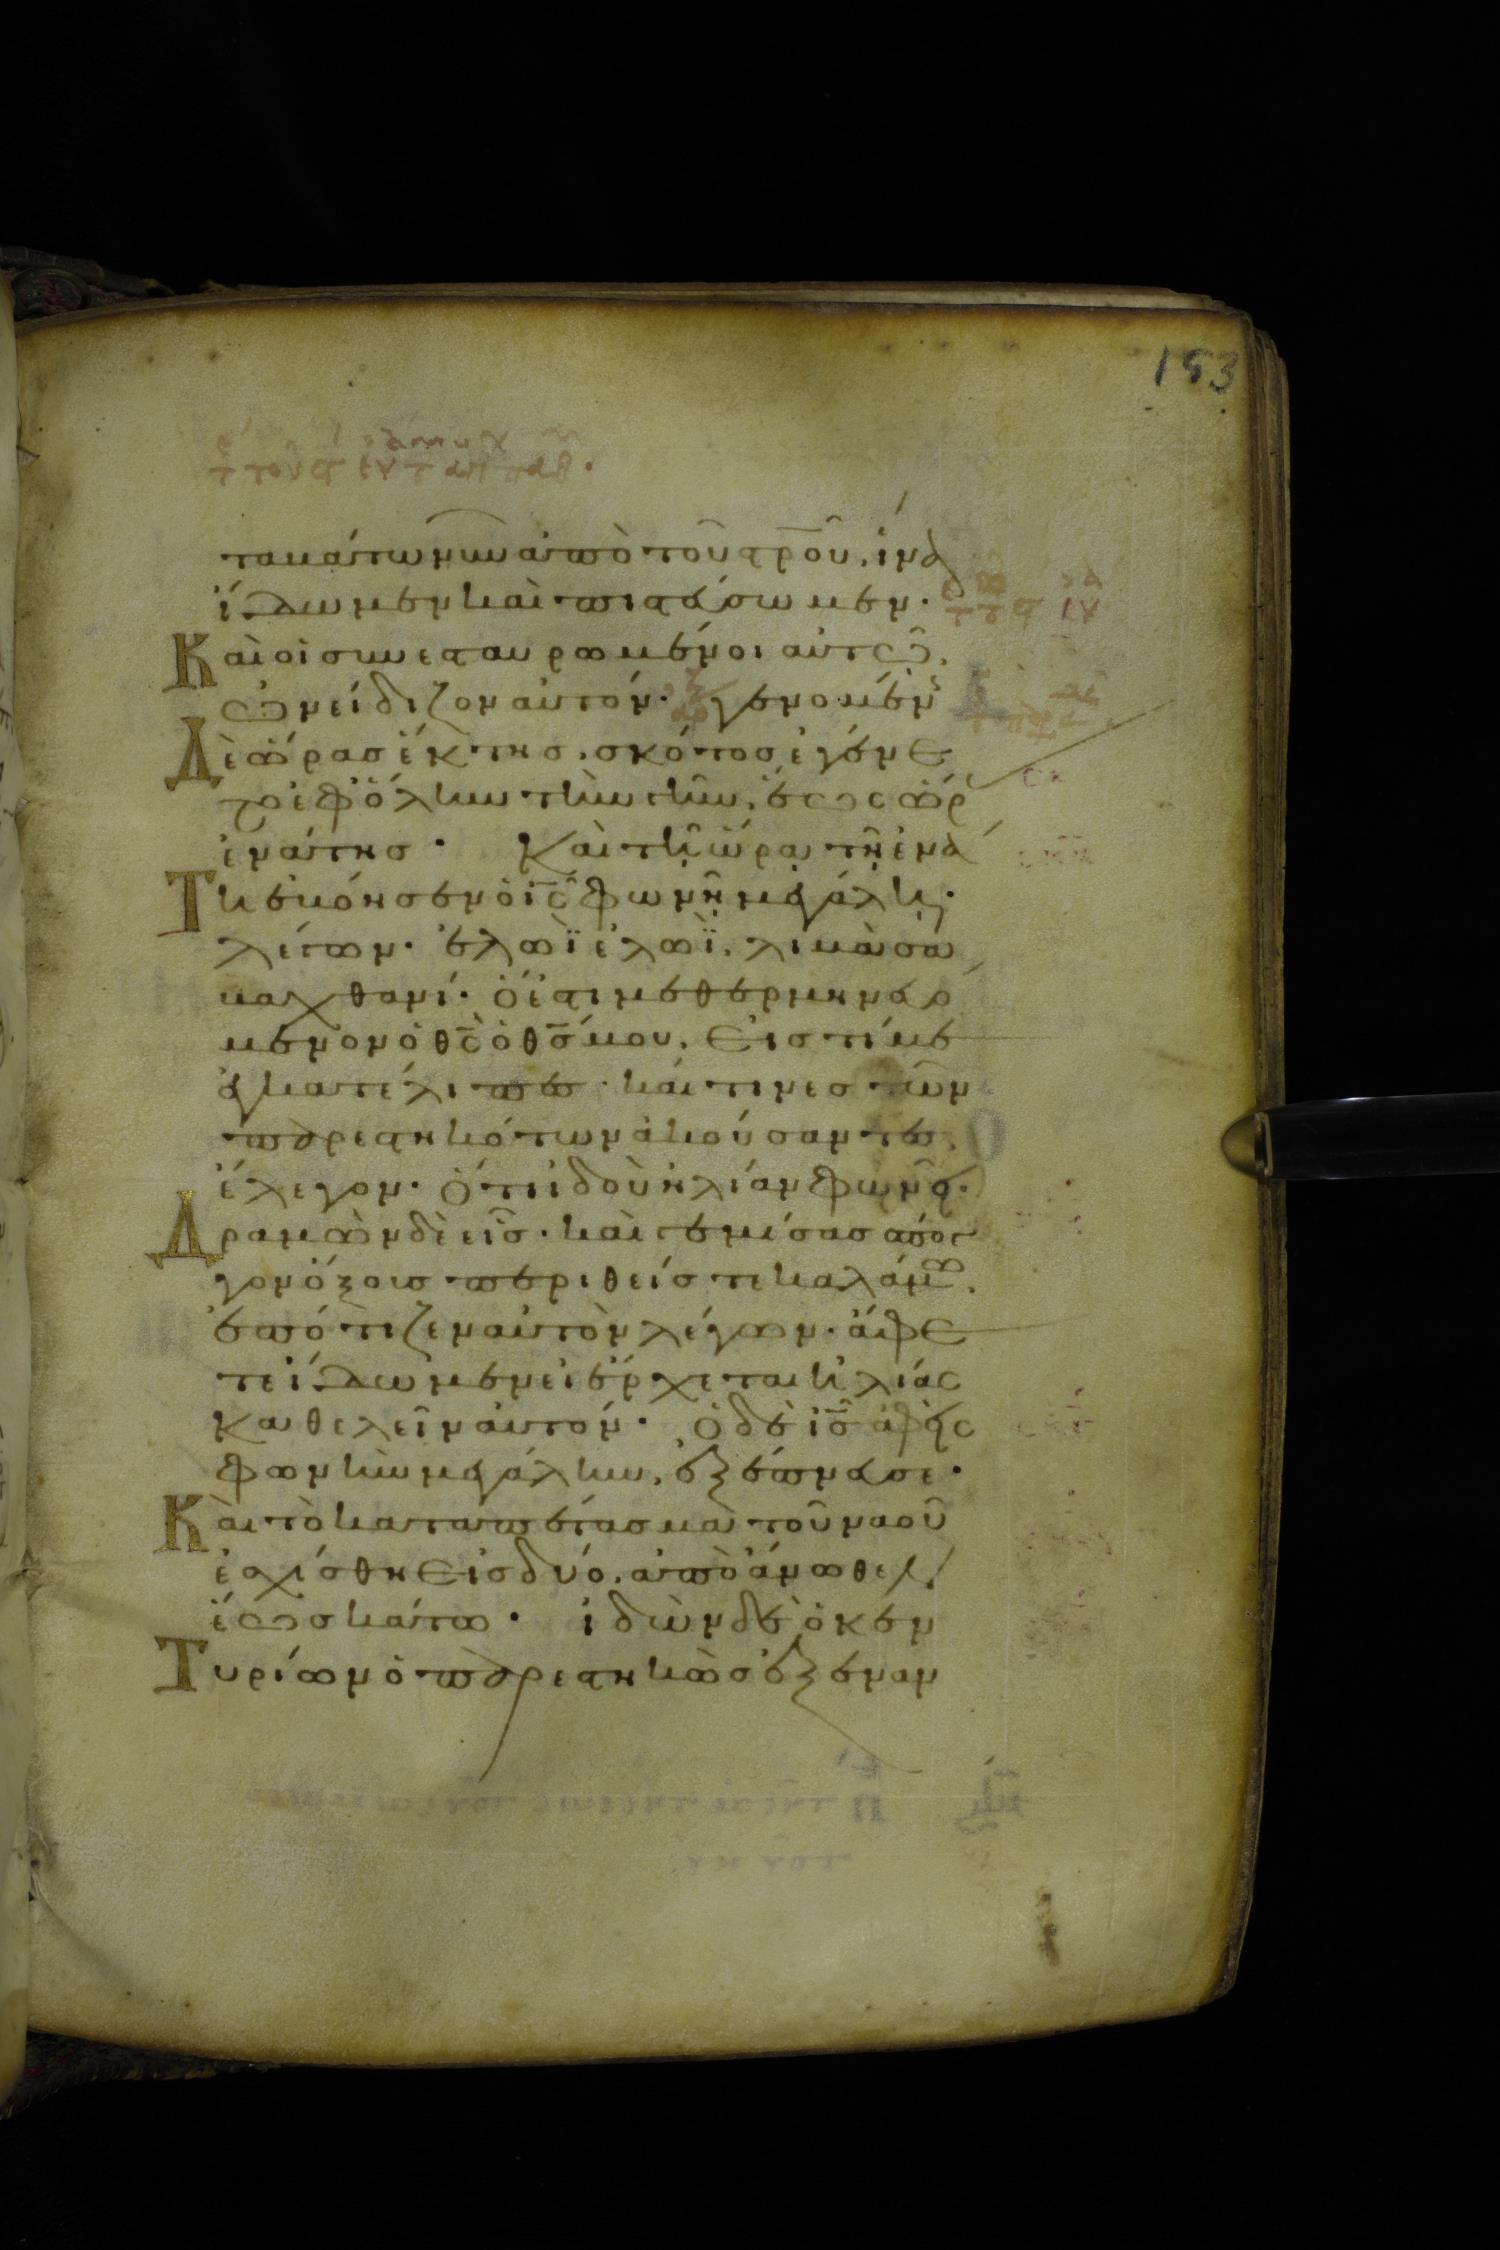 153
τακάτω νῦν ἀπὸ τοῦ στ̅ρ̅οῦ, ἵνα
ἴδωμεν καὶ πιστεύσωμεν·
Καὶ οἱ συνεσταυρωμένοι αὐτῶ,
ὠνείδιζον αὐτόν· γενομέν
Δὲ ὥρας ἕκτης, σκότος ἐγένε
το ἐφ' ὅλην τὴν γῆν, ἕως ὥρ
ἐνάτης· Καὶ τῆ ὥρα τῆ ἐνά
Τη ἐβόησεν ὁ ι̅ς̅ φωνῆ μεγάλη·
λέγων· ἐλωῒ ἐλωῒ, λιμὰ σα
βαχθανί· ὅ ἐστι μεθερμηνευ
μενον ὁ θ̅ς̅ ὁ θ̅ς̅ μου, Εἰς τί με
ἐγκατέλιπες· καί τινες τῶν
παρεστηκότων ἀκούσαντες,
ἔλεγον· Ὅτι ἰδοὺ ἠλίαν φωνεῖ·
Δραμὼν δὲ εἷς· καὶ γεμίσας σπόγ
γον ὄξους περιθείς τε καλάμω,
ἐπότιζεν αὐτὸν λέγων· ἄφε
τε ἴδωμεν εἰ ἔρχεται ἠλίας
καθελεῖν αὐτόν· Ὁ δὲ ι̅ς̅ ἀφεὶς
φωνὴν μεγάλην, ἐξέπνευσε·
Καὶ τὸ καταπέτασμα τοῦ ναοῦ
ἐσχίσθη εἰς δύο, ἀπὸ ἄνωθεν
ἕως κάτω· ἰδὼν δὲ ὁ κεν
Τυρίων ὁ παρεστηκὼς ἐξεναν